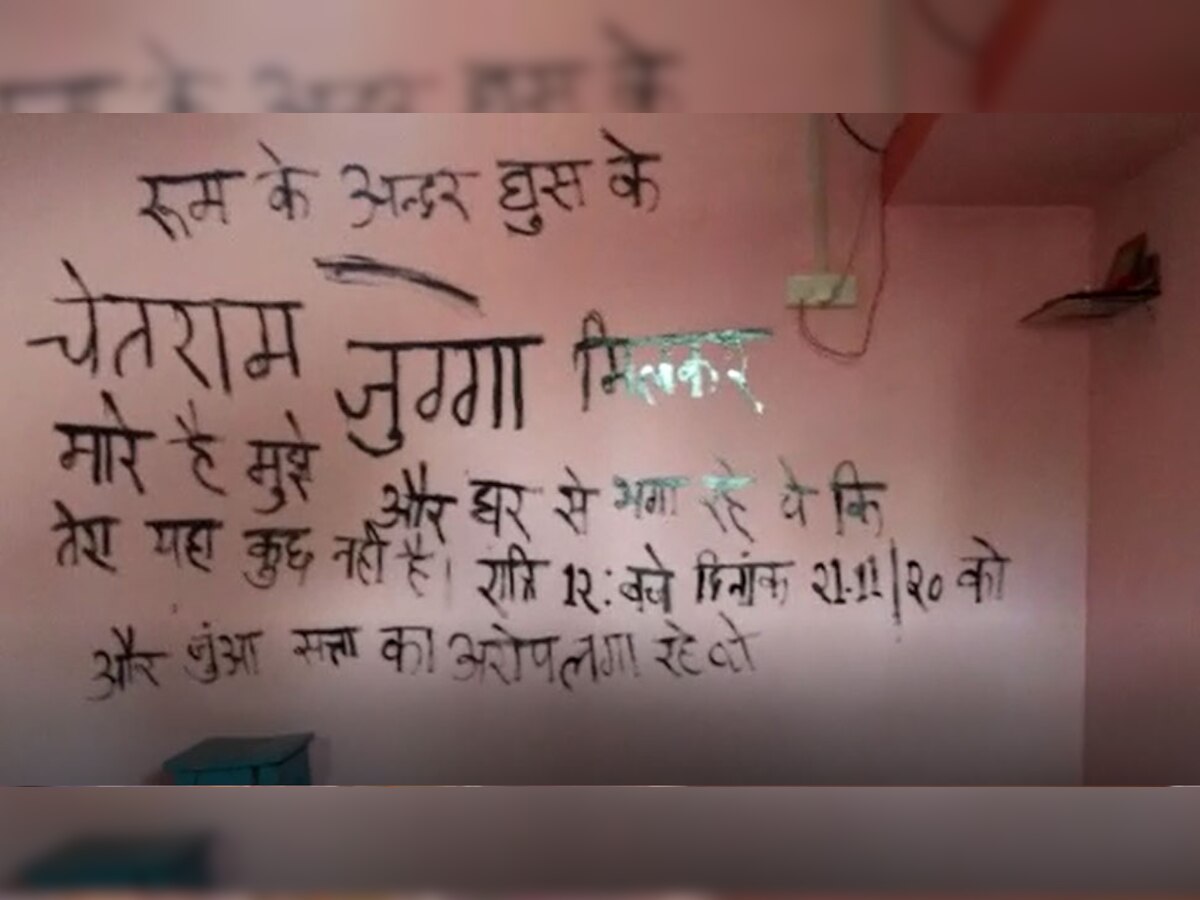 रूम के अन्दर घुस के
चेतराम जुग्गा मिलकर
मारे है मुझे
और घर से भगा रहे थे कि
तेरा यहा कुछ नही है। रात्रि 12: बजे दिनांक 21.11/20 को
और जुंआ सत्ता का अरोप लगा रहे वो